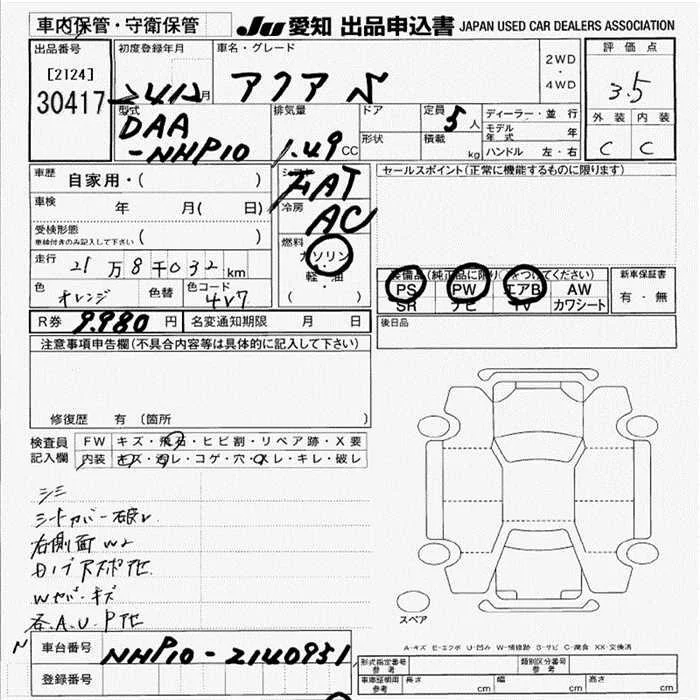 車内保管・守衛保管
JU 愛知 出品申込書 JAPAN USED CAR DEALERS ASSOCIATION
出品番号 初度登録年月 車名・グレード 評価点
[2124]
30417
24 12 月 アクア S
2WD
・
4WD
3.5
外装 内装
C C
型式 排気量 ドア 定員 5人 ディーラー・並行
DAA
-NHP10 1.49 CC
形状 積載 kg
モデル年式 年
ハンドル 左・右
車歴 自家用・( ) シフト FAT
セールスポイント(正常に機能するものに限ります)
車検 年 月( 日) 冷房 AC
受検形態
車検付きのみ記入して下さい ( )
燃料 ガソリン
軽・油
( )
走行 21万8千032km
色 オレンジ 色替 色コード 4V7
装備品(純正品に限り○をつけてください) 新車保証書
PS PW エアB AW
SR ナビ TV カワシート
有・無
R券 9.980 円 名変通知期限 月 日
後日品
注意事項申告欄(不具合内容等は具体的に記入して下さい)
修復歴 有(箇所 )
検査員 FW キズ・飛石・ヒビ割・リペア跡・X要
記入欄 内装 キズ・汚レ・コゲ・穴・スレ・キレ・破レ
シミ
シートカバー破レ
右側面 W2
各.A.U.P他
スペア
A-キズ E-エクボ U-凹み W-補修跡 S-サビ C-腐食 XX-交換済
車台番号 NHP10-2140951
登録番号
形式指定番号 参考 類別区分番号 参考
車庫証明用 参考 長さ cm 幅 cm 高さ cm